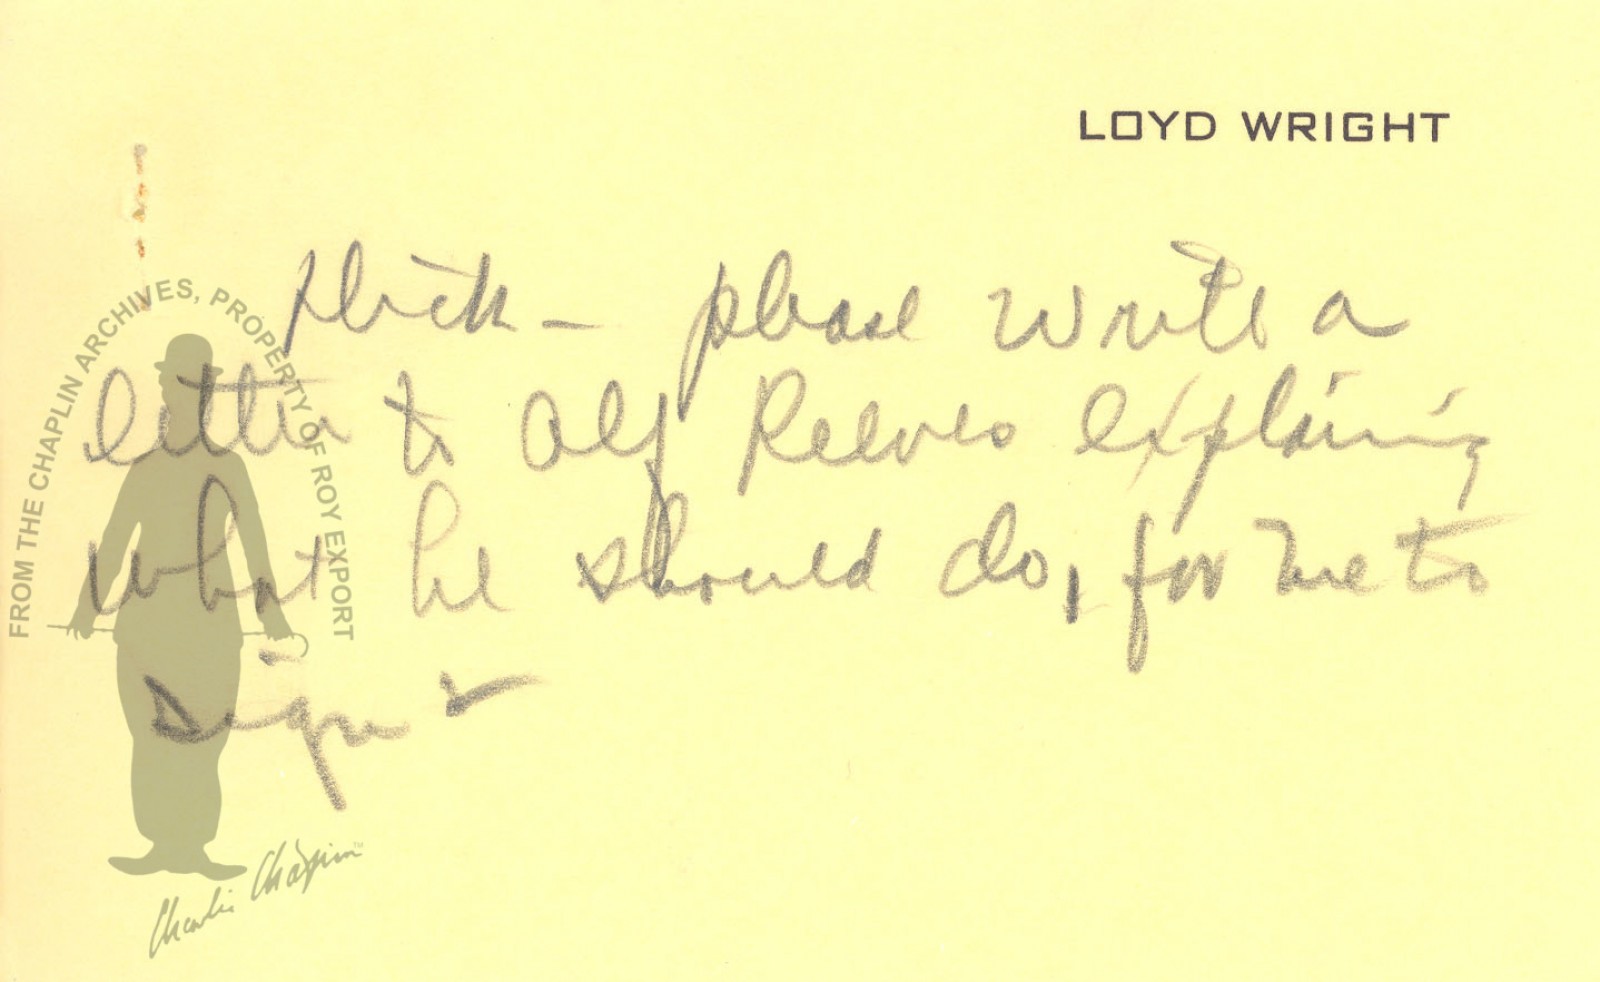 LOYD WRIGHT
— please write a
letter to Alf Reeves explaining
what he should do, for me to
sign
FROM THE CHAPLIN ARCHIVES, PROPERTY OF ROY EXPORT
Charlie Chaplin™